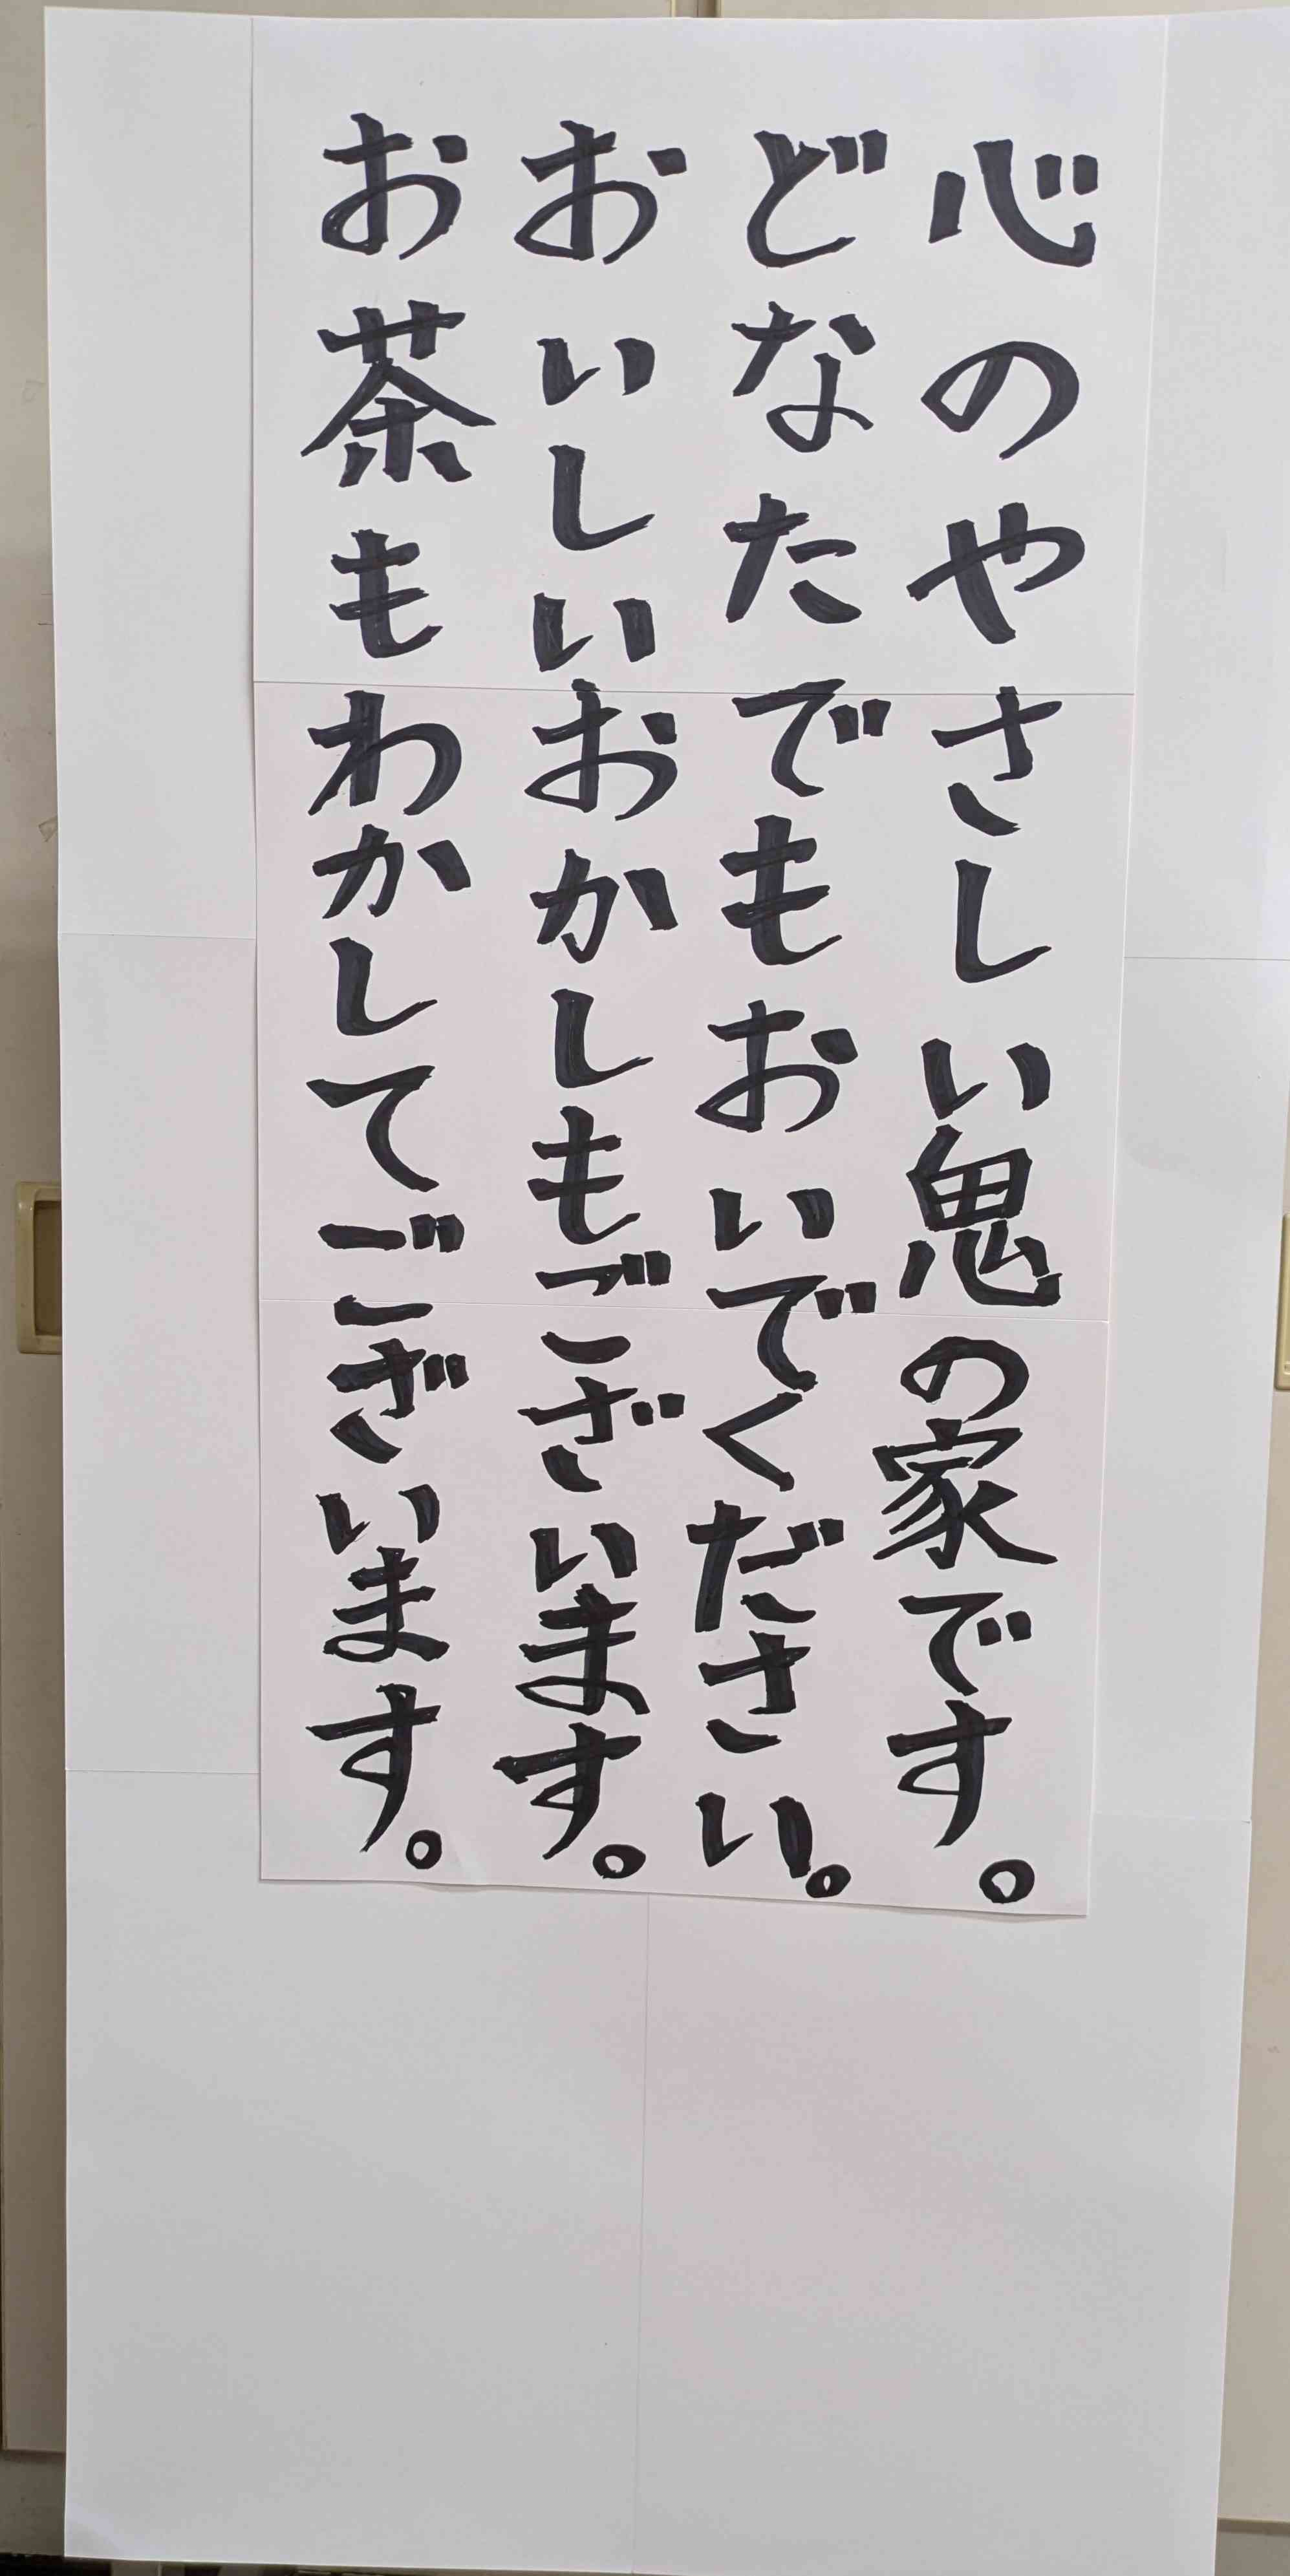 心のやさしい鬼の家です。
どなたでもおいでください。
おいしいおかしもございます。
お茶もわかしてございます。